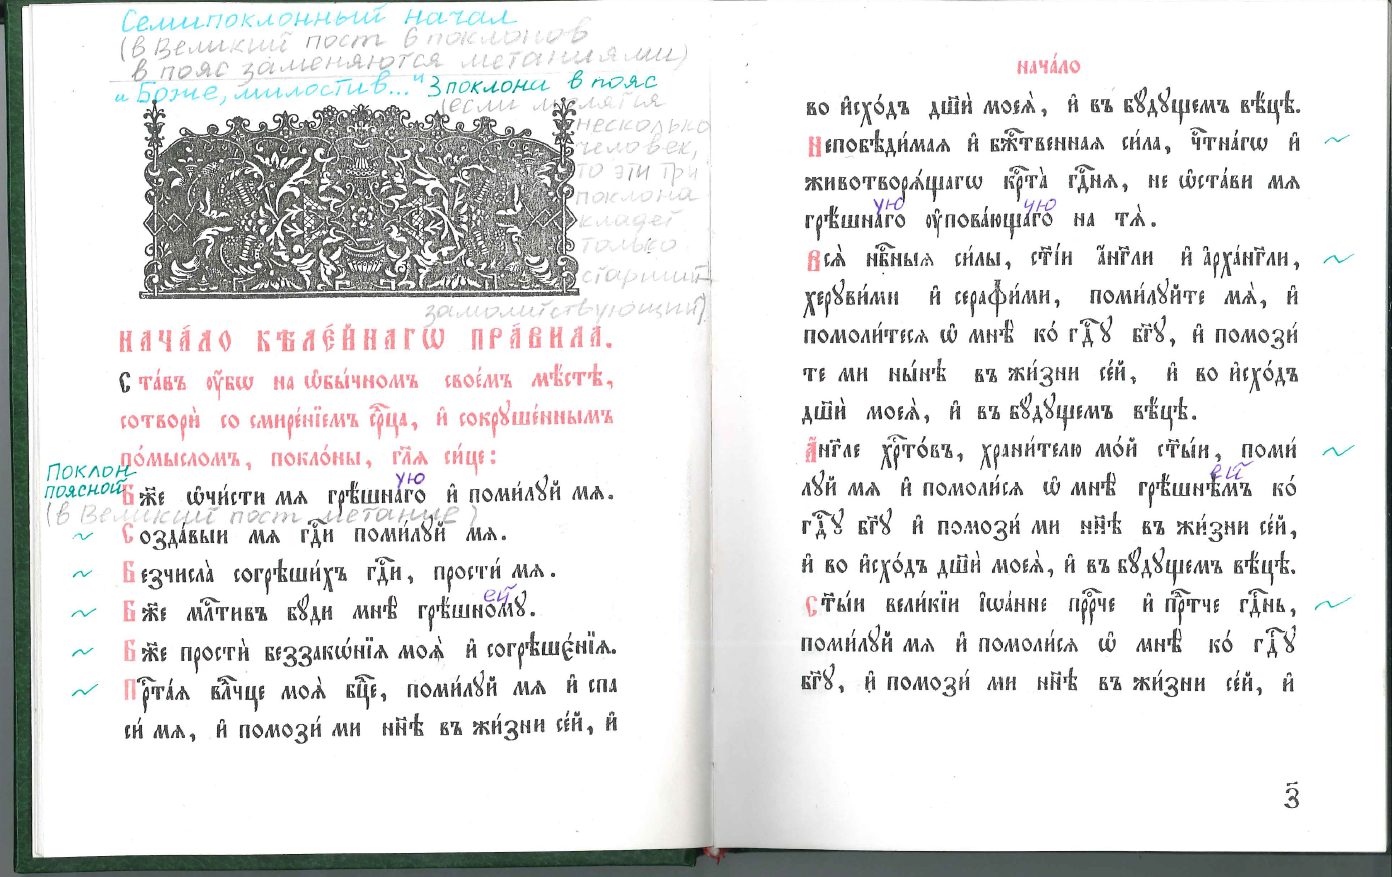 Семипоклонный начал
(в Великий пост 6 поклонов
в пояс заменяются метаниями)
"Боже, милостив..." 3 поклона в пояс
(если молятся
несколько
человек,
то эти три
поклона
кладет
только
старший,
замолитствующий)
НАЧА́ЛО КѢЛЕ́ЙНАГѠ ПРА́ВИЛА.
Ста́въ ᲂу҆́бѡ на ѡ҆бы́чномъ свое́мъ мѣ́стѣ,
сотворѝ со смире́нїемъ срⷣца, и҆ сокруше́ннымъ
по́мысломъ, покло́ны, гл҃я си́це:
Поклон
поясной
Бж҃е ѡ҆чи́сти мя грѣ́шнаго и҆ поми́лꙋй мя.
ую
(в Великий пост метание)
~ Созда́выи мя гдⷭ҇и поми́лꙋй мя.
~ Безчисла̀ согрѣши́хъ гдⷭ҇и, прости́ мя.
~ Бж҃е млⷭ҇тивъ бꙋ́ди мнѣ̀ грѣ́шномꙋ.
ей
~ Бж҃е простѝ беззако́нїя моя̀ и҆ согрѣше́нїя.
~ Прⷭ҇та́я влⷣчце моя̀ бцⷣе, поми́лꙋй мя и҆ спа
си́ мя, и҆ помози́ ми нн҃ѣ въ жи́зни се́й, и҆
НАЧА́ЛО
во и҆схо́дъ дш҃ѝ моея̀, и҆ въ бꙋ́дꙋщемъ вѣ́цѣ.
Непобѣди́мая и҆ бжⷭ҇твенная си́ла, чтⷭ҇на́гѡ и҆ ~
животворя́щагѡ крⷭ҇та̀ гдⷭ҇ня, не ѡ҆ста́ви мя
ую ую
грѣ́шнаго ᲂу҆пова́ющаго на тя̀.
Вся̀ нбⷭ҇ныя си́лы, ст҃і́и а҆́нгл҃и и҆ а҆рха́нгл҃и, ~
херꙋви́ми и҆ серафи́ми, поми́лꙋйте мя̀, и҆
помоли́теся ѡ҆ мнѣ̀ ко́ гдⷭ҇ꙋ бг҃ꙋ, и҆ помози́
те ми ны́нѣ въ жи́зни се́й, и҆ во и҆схо́дъ
дш҃ѝ моея̀, и҆ въ бꙋ́дꙋщемъ вѣ́цѣ.
А҆́нгл҃е хрⷭ҇то́въ, храни́телю мо́й ст҃ы́и, поми́ ~
ей
лꙋй мя и҆ помоли́ся ѡ҆ мнѣ̀ грѣ́шнѣмъ ко́
гдⷭ҇ꙋ бг҃ꙋ и҆ помози́ ми нн҃ѣ въ жи́зни се́й,
и҆ во и҆схо́дъ дш҃ѝ моея̀, и҆ въ бꙋ́дꙋщемъ вѣ́цѣ.
Ст҃ы́и вели́кїи і҆ѡа́нне прⷪ҇рче и҆ прⷣтче гдⷭ҇нь, ~
поми́лꙋй мя и҆ помоли́ся ѡ҆ мнѣ̀ ко́ гдⷭ҇ꙋ
бг҃ꙋ, и҆ помози́ ми нн҃ѣ въ жи́зни се́й, и҆
з҃